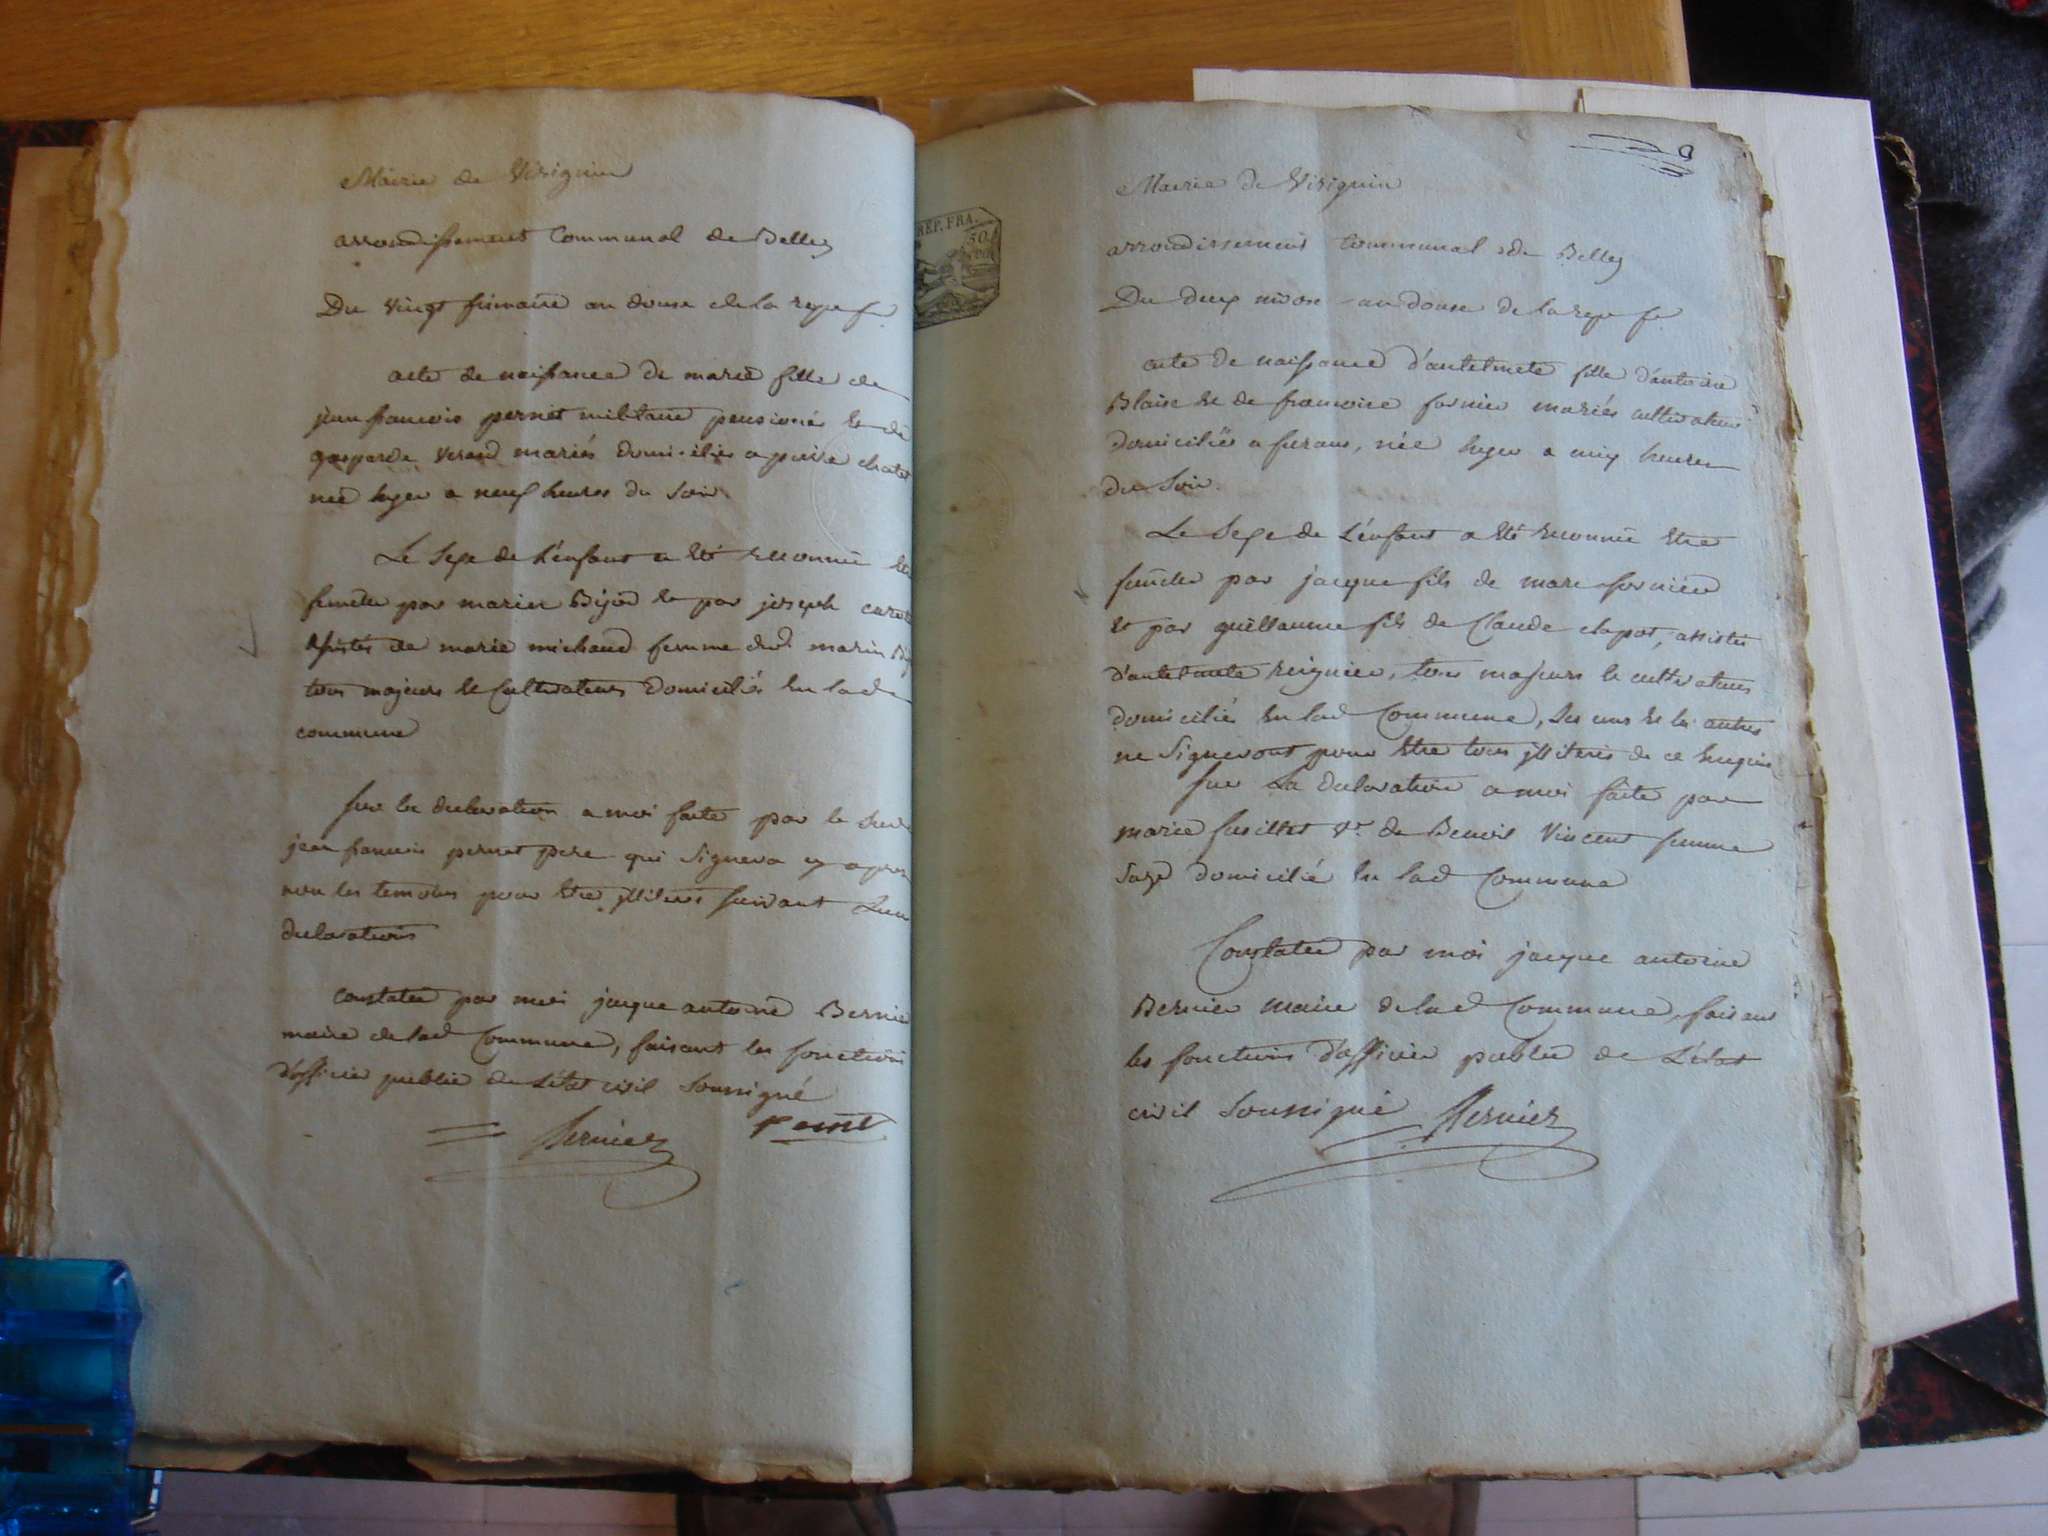 Mairie de Virignin
arrondissement Communal de Belley
Du vingt frimaire an douse de la rep fr
acte de naissance de marie fille de
jean francois pernet militaire pensionés et de
gasparde verand mariés domiciliés a pierre chatel
née hyer a neuf heures du soir
Le sexe de l'enfant a été reconnu etre
femelle par marin Bijod et par joseph
assistés de marie michaud femme dud. marin
tous majeurs et Cultivateurs domiciliés en lad
commune
sur la declaration a moi faite par le
jean francois pernet pere qui signera cy apres
non les temoins pour etre jlliterés suivant leur
declarations
constatée par moi jacque antoine Bernier
maire de lad Commune, faisant les fonctions
d'officier publie de l'état civil soussigné
Bernier
REP. FRA.
50
Mairie de Virignin
arrondissement Communal de Belley
Du deux nivose an douse de la rep fr
acte de naissance d'antelmete fille d'antoine
Blaise et de francoise fornier mariés cultivateurs
domiciliés a furans, née hyer a heures
du soir.
Le sexe de l'enfant a été reconnu etre
femelle par jacque fils de marc fornier
et par guillaume fils de Claude chapot, assistés
d'antelmete reignier, tous majeurs et cultivateurs
domiciliés en lad Commune, les uns et les autres
ne signeront pour etre tous jlliterés de ce enquis
sur La declaration a moi faite par
marie fusillet ve. de Benoit Vincent femme
sage domicilié en lad Commune
Constatée par moi jacque antoine
Bernier maire de lad Commune, faisant
les fonctions d'officier publie de L'état
civil soussigné Bernier